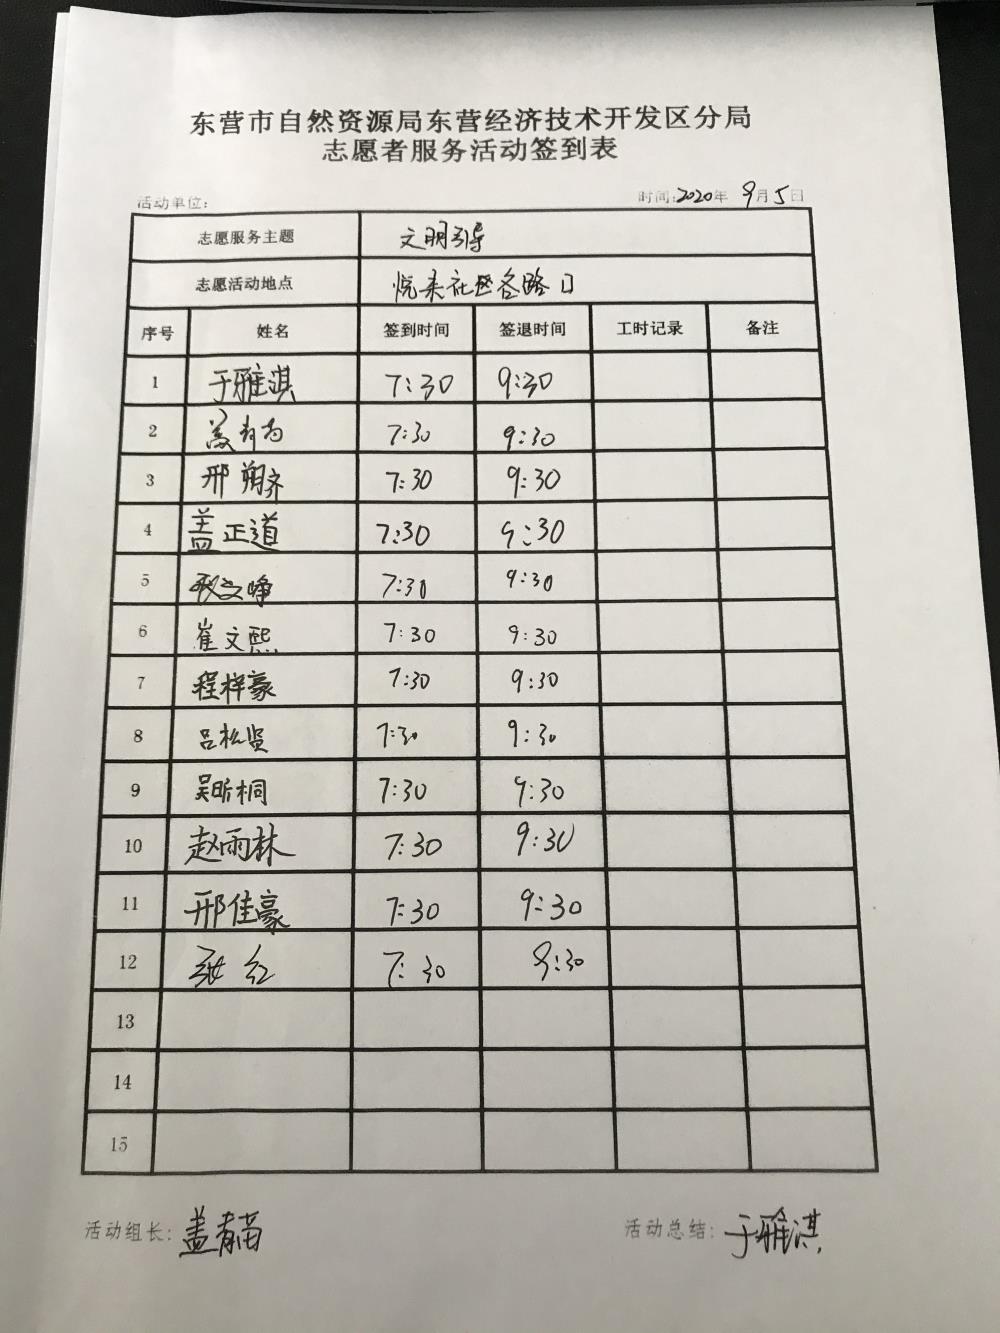 东营市自然资源局东营经济技术开发区分局
志愿者服务活动签到表
活动单位： 时间：2020年 9月5日
志愿服务主题 文明引导
志愿活动地点 悦来社区各路口
序号 姓名 签到时间 签退时间 工时记录 备注
1 于雅淇 7:30 9:30
2 7:30 9:30
3 邢朔齐 7:30 9:30
4 盖正道 7:30 9:30
5 文峥 7:30 9:30
6 崔文熙 7:30 9:30
7 程梓豪 7:30 9:30
8 吕松贤 7:30 9:30
9 吴昕桐 7:30 9:30
10 赵雨林 7:30 9:30
11 邢佳豪 7:30 9:30
12 张红 7:30 9:30
13
14
15
活动组长：盖春苗 活动总结：于雅淇